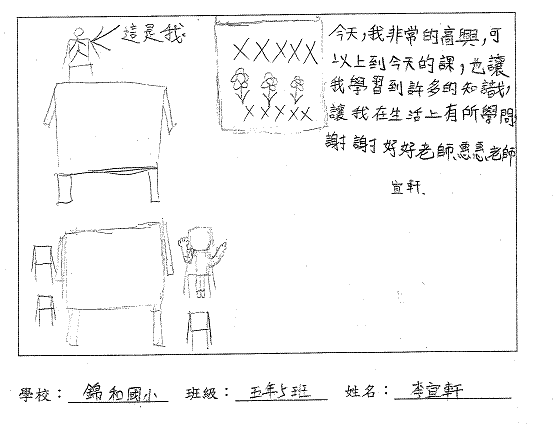 這是我。
XXXXX
XXXXX
今天，我非常的高興，可
以上到今天的課，也讓
我學習到許多的知識，
讓我在生活上有所學問
謝謝好好老師、惠惠老師
宣軒.
學校：錦和國小 班級：五年5班 姓名：李宣軒